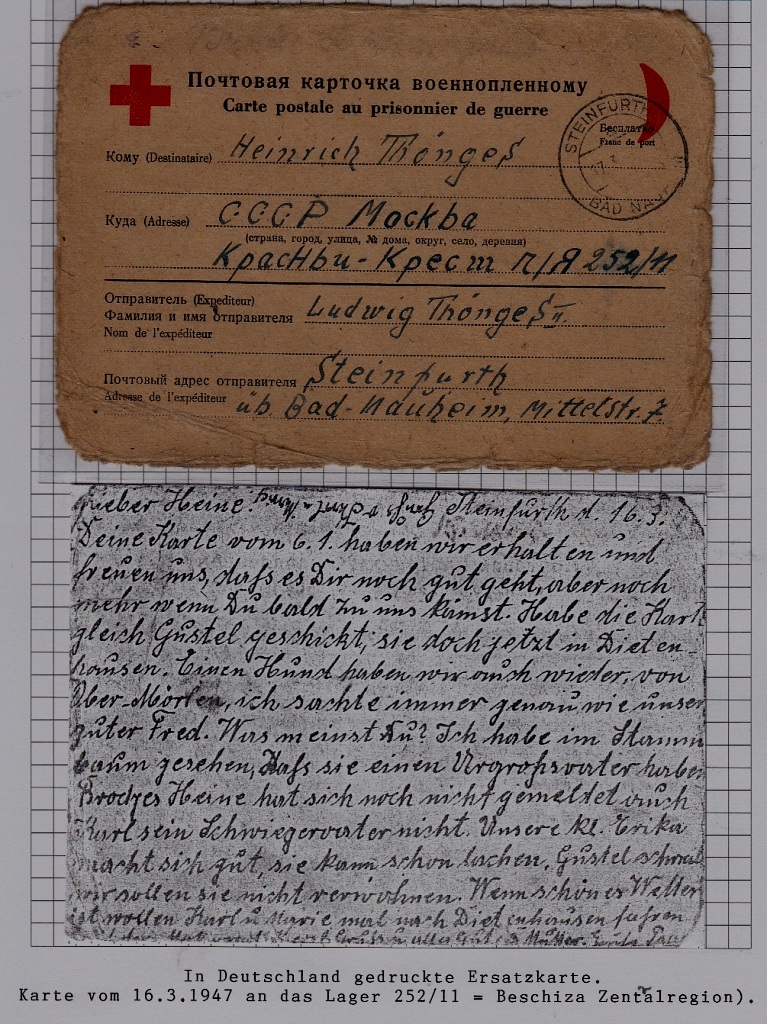 Почтовая карточка военнопленному
Carte postale au prisonnier de guerre
STEINFURTH
BAD NAUHEIM
Бесплатно
Franc de port
Кому (Destinataire) Heinrich Thönges
Куда (Adresse) СССР Москва
(страна, город, улица, № дома, округ, село, деревня)
Красны-Крест п/Я 252/11
Отправитель (Expediteur)
Фамилия и имя отправителя Ludwig Thönges II.
Nom de l'expéditeur
Почтовый адрес отправителя Steinfurth
Adresse de l'expéditeur üb. Bad-Nauheim, Mittelstr. 7
Lieber Heine! Steinfurth d. 16.3.
Deine Karte vom 6.1. haben wir erhalten und
freuen uns, dass es Dir noch gut geht, aber noch
mehr wenn Du bald zu uns kämst. Habe die Karte
gleich Gustel geschickt, sie doch jetzt in Dieten-
hausen. Einen Hund haben wir auch wieder, von
Ober-Mörlen, ich sachte immer genau wie unser
guter Fred. Was meinst Du? Ich habe im Stamm
baum gesehen, dass sie einen Urgrossvater haben
Heine hat sich noch nicht gemeldet auch
Karl sein Schwiegervater nicht. Unsere kl. Erika
macht sich gut, sie kann schon lachen, Gustel schreibt
wir sollen sie nicht verwöhnen. Wenn schönes Wetter
ist wollen Karl u Marie mal nach Dietenhausen fahren
In Deutschland gedruckte Ersatzkarte.
Karte vom 16.3.1947 an das Lager 252/11 = Beschiza Zentalregion).